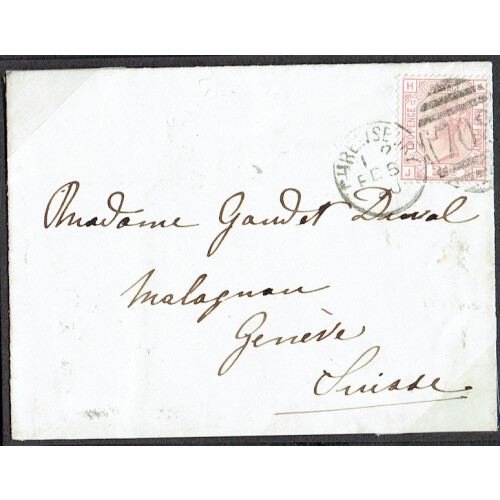 H
TWOPENCE
J
FE 5
Madame Gaudet Duval
Malagnou
Genève
Suisse